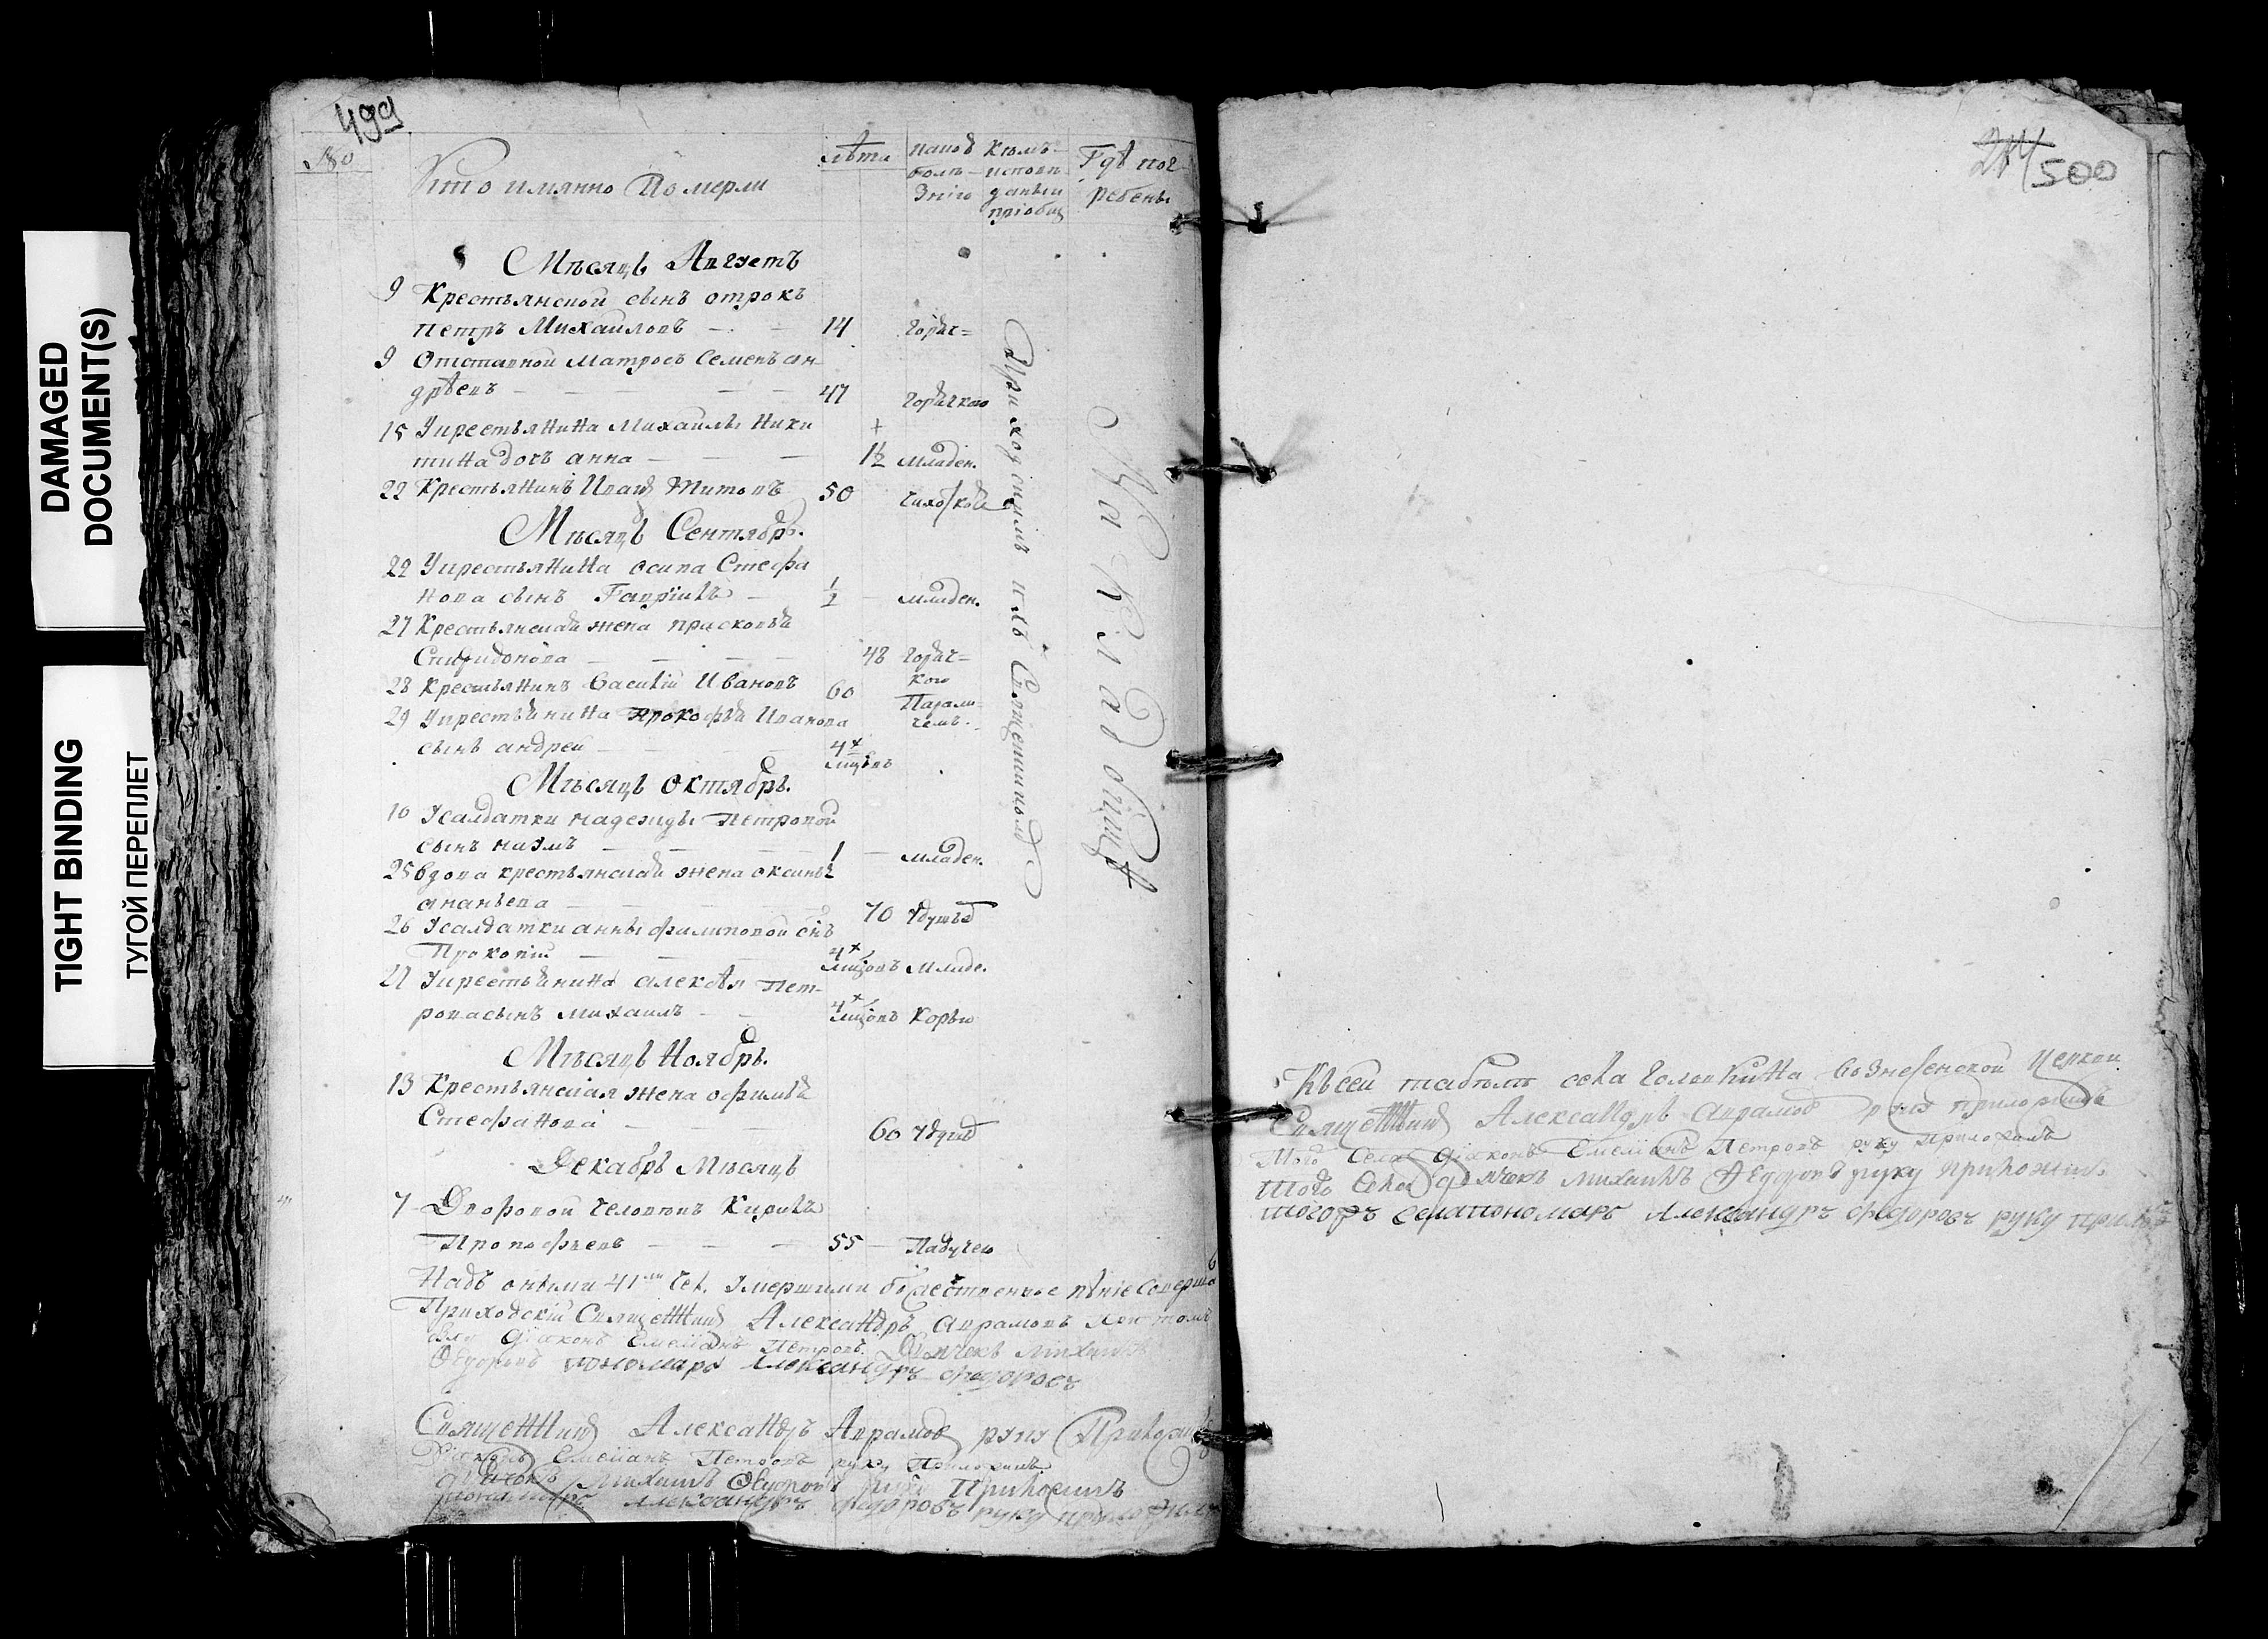 DAMAGED
DOCUMENT(S)
TIGHT BINDING
ТУГОЙ ПЕРЕПЛЕТ
499
№
Кто имянно Померли
лѣта
какой
болѣ-
знію
Кѣмъ
исповѣ
даны и
пріобщ
Гдѣ пог-
ребены
Мѣсяцъ Августъ
9 Крестьянской сынъ отрокъ
петръ Михаиловъ — — 14 горяч=
9 Отставной матросъ Семенъ ан-
дрѣевъ — — — 47 горячкою
15 У крестьянина Михаилы Ники
тина дочь анна — — 1½ младен.
22 Крестьянинъ Иванъ Титовъ 50 чахоткою
Мѣсяцъ Сентябрь.
22 У крестьянина осипа Стефа
нова сынъ Гавріилъ — ½ младен.
27 Крестьянская жена прасковья
Спиридонова — — — 48 горяч=
кою
28 Крестьянинъ Василій Ивановъ 60 Парали-
чемъ.
29 У крестьянина Прокофья Иванова
сынъ андрей — — — 4 мцовъ
Мѣсяцъ Октябрь.
10 У салдатки надежды Петровой
сынъ наумъ — — 1 — младен.
25 вдова крестьянская жена оксинья
ананьева — — 70 удушьемъ
26 У салдатки анны филиповой снъ
Прокопій — — 4 мцовъ Младе.
27 У крестьянина алексѣя Пет-
рова сынъ михаилъ — — 4 мцовъ Корью
Мѣсяцъ Ноябрь.
13 Крестьянская жена офимья
Стефанова — — 60 удуш
Декабрь Мѣсяцъ
7 Дворовой человѣкъ Кирилъ
Прокофьевъ — — — 55 — Падучею
Приходскимъ ихъ Священникомъ
На Кладбищѣ
Надъ оными 41 чел. умершими божественное пѣніе Соверша
Приходскій Священникъ Александръ аврамовъ
діаконъ Емеліанъ Петровъ. Дьячекъ михаилъ
Ѳедоровъ пономарь Александръ федоровъ
Священникъ Александръ Аврамовъ руку Приложилъ
Діаконъ Емеліанъ Петровъ руку Приложилъ
дьячекъ михаилъ Ѳедоровъ руку Приложилъ
пономарь Александръ федоровъ руку приложилъ
214 500
Къ сей табели села Головкина Вознесенской Церкви
Священникъ Александръ аврамовъ руку приложилъ
Того Села діаконъ Емеліанъ Петровъ руку приложилъ
того Села дьячекъ михаилъ Ѳедоровъ руку приложилъ
тогожъ села пономарь Александръ федоровъ руку прилож